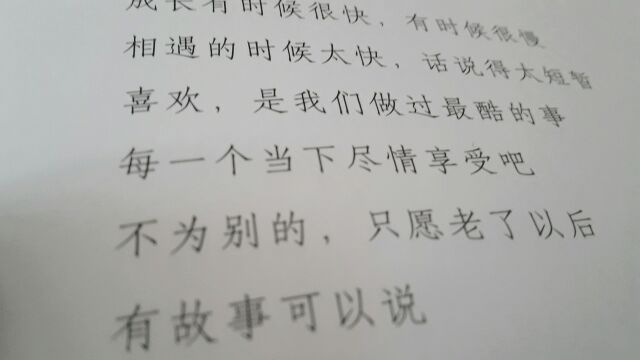 成长有时候很快，有时候很慢
相遇的时候太快，话说得太短暂
喜欢，是我们做过最酷的事
每一个当下尽情享受吧
不为别的，只愿老了以后
有故事可以说